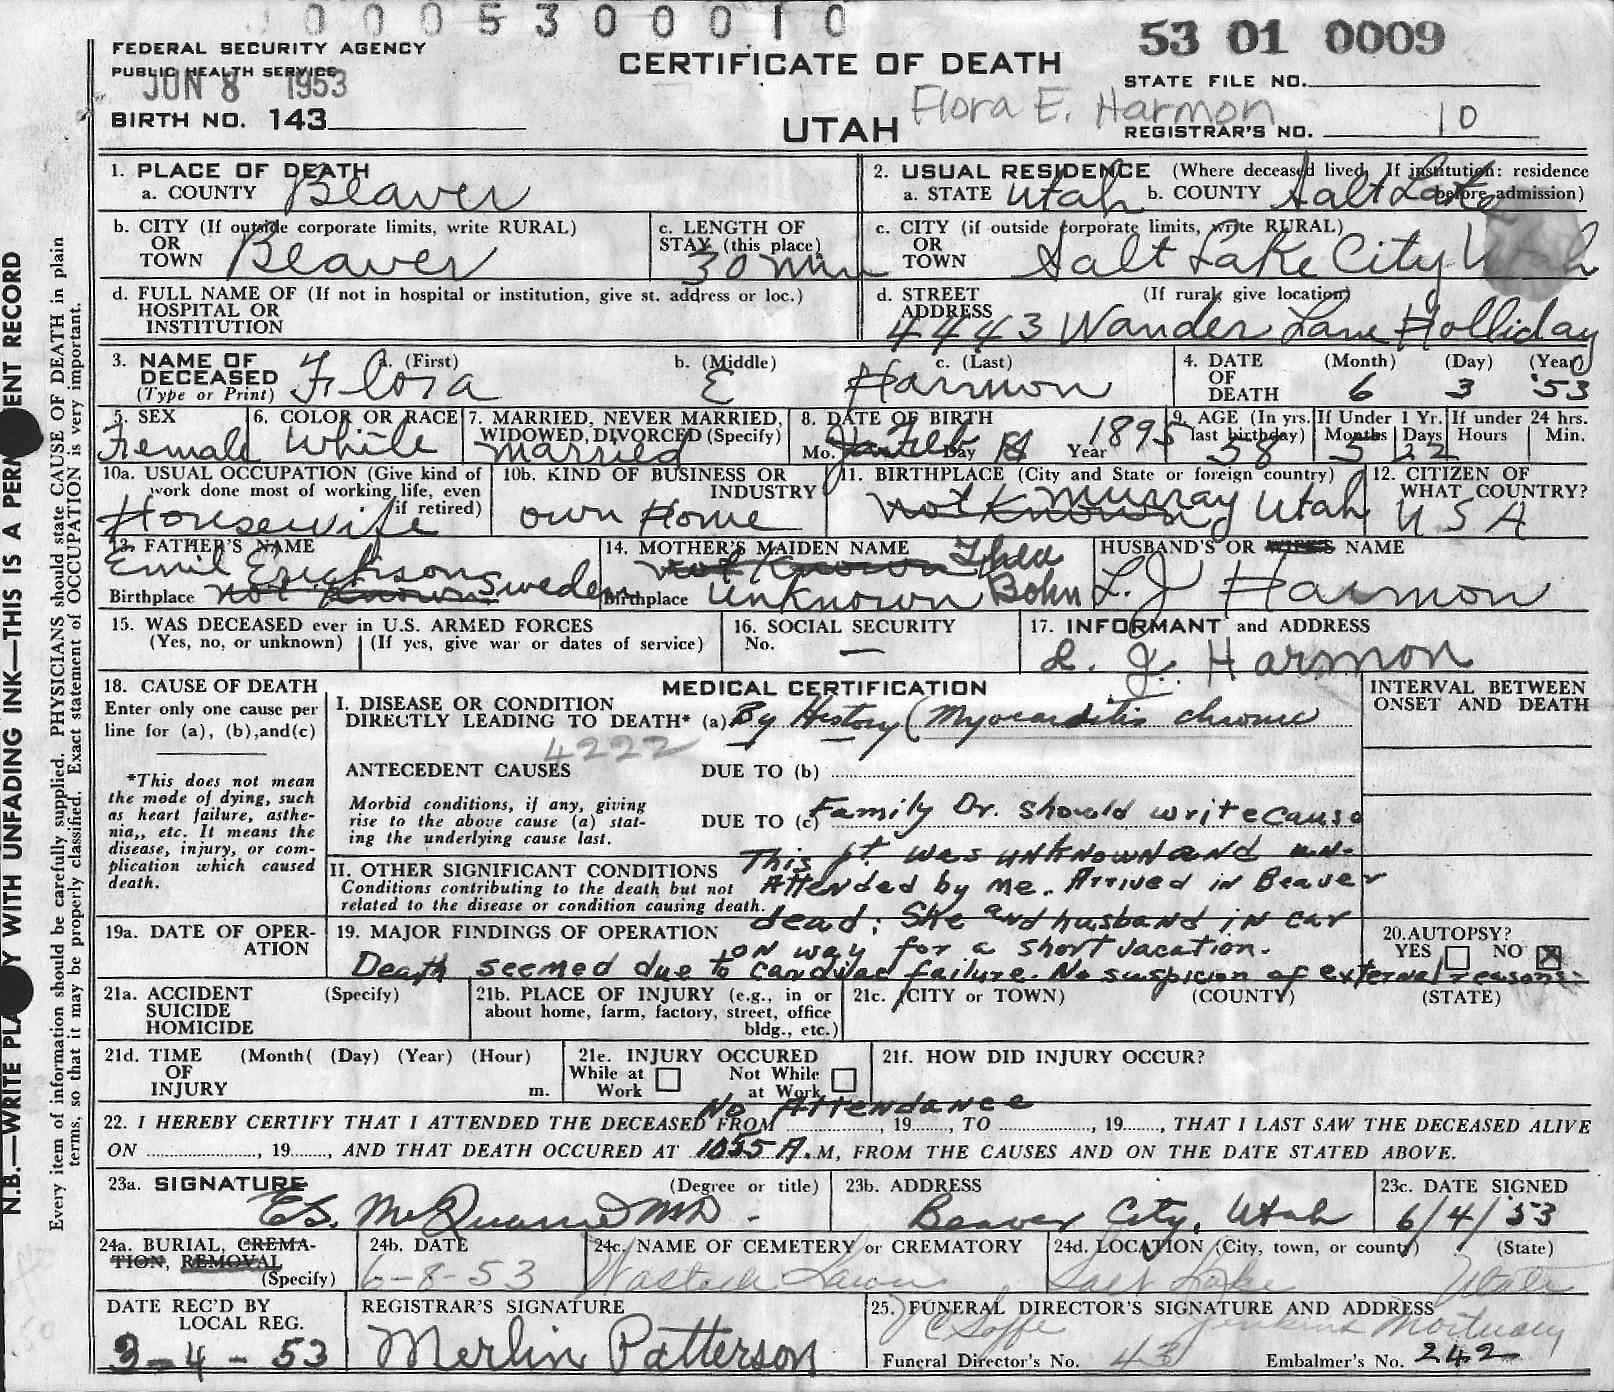 0 0 0 5 3 0 0 0 1 0
53 01 0009
FEDERAL SECURITY AGENCY
PUBLIC HEALTH SERVICE
JUN 8 1953
CERTIFICATE OF DEATH
STATE FILE NO.
Flora E. Harmon
BIRTH NO. 143
UTAH
REGISTRAR'S NO. 10
1. PLACE OF DEATH
a. COUNTY Beaver
2. USUAL RESIDENCE (Where deceased lived. If institution: residence before admission)
a. STATE Utah b. COUNTY Salt Lake
b. CITY (If outside corporate limits, write RURAL)
OR
TOWN Beaver
c. LENGTH OF
STAY (this place)
30 min
c. CITY (if outside corporate limits, write RURAL)
OR
TOWN Salt Lake City Utah
d. FULL NAME OF (If not in hospital or institution, give st. address or loc.)
HOSPITAL OR
INSTITUTION
d. STREET (If rural, give location)
ADDRESS
4443 Wander Lane Holliday
3. NAME OF
DECEASED
(Type or Print)
a. (First) Flora
b. (Middle) E
c. (Last) Harmon
4. DATE
OF
DEATH
(Month) (Day) (Year)
6 3 '53
5. SEX
Female
6. COLOR OR RACE
White
7. MARRIED, NEVER MARRIED,
WIDOWED, DIVORCED (Specify)
Married
8. DATE OF BIRTH
Mo. Feb Day Year 1895
9. AGE (In yrs.
last birthday)
58
If Under 1 Yr.
Months Days
5 22
If under 24 hrs.
Hours Min.
10a. USUAL OCCUPATION (Give kind of
work done most of working life, even
if retired)
Housewife
10b. KIND OF BUSINESS OR
INDUSTRY
own Home
11. BIRTHPLACE (City and State or foreign country)
not known Murray Utah
12. CITIZEN OF
WHAT COUNTRY?
U S A
13. FATHER'S NAME
Emil Erickson
Birthplace not known Sweden
14. MOTHER'S MAIDEN NAME
not known Bohn
Birthplace unknown
HUSBAND'S OR WIFE'S NAME
L. J Harmon
15. WAS DECEASED ever in U.S. ARMED FORCES
(Yes, no, or unknown) (If yes, give war or dates of service)
16. SOCIAL SECURITY
No. —
17. INFORMANT and ADDRESS
L. J. Harmon
18. CAUSE OF DEATH
Enter only one cause per
line for (a), (b), and (c)
*This does not mean
the mode of dying, such
as heart failure, asthe-
nia,, etc. It means the
disease, injury, or com-
plication which caused
death.
MEDICAL CERTIFICATION
I. DISEASE OR CONDITION
DIRECTLY LEADING TO DEATH* (a) By History (Myocarditis chronic
4222
ANTECEDENT CAUSES DUE TO (b)
Morbid conditions, if any, giving
rise to the above cause (a) stat-
ing the underlying cause last.
DUE TO (c) Family Dr. should write cause
This pt. was unknown and un-
II. OTHER SIGNIFICANT CONDITIONS
Conditions contributing to the death but not
related to the disease or condition causing death.
Attended by me. Arrived in Beaver
dead; She and husband in car
on way for a short vacation.
INTERVAL BETWEEN
ONSET AND DEATH
19a. DATE OF OPER-
ATION
19. MAJOR FINDINGS OF OPERATION
Death seemed due to cardiac failure. No suspicion of external reasons.
20. AUTOPSY?
YES NO X
21a. ACCIDENT (Specify)
SUICIDE
HOMICIDE
21b. PLACE OF INJURY (e.g., in or
about home, farm, factory, street, office
bldg., etc.)
21c. (CITY or TOWN) (COUNTY) (STATE)
21d. TIME (Month( (Day) (Year) (Hour)
OF
INJURY m.
21e. INJURY OCCURED
While at Work Not While at Work
21f. HOW DID INJURY OCCUR?
No Attendance
22. I HEREBY CERTIFY THAT I ATTENDED THE DECEASED FROM , 19 , TO , 19 , THAT I LAST SAW THE DECEASED ALIVE
ON , 19 , AND THAT DEATH OCCURED AT 1055 A.M, FROM THE CAUSES AND ON THE DATE STATED ABOVE.
23a. SIGNATURE (Degree or title)
E.S. McQuarrie MD -
23b. ADDRESS
Beaver City, Utah
23c. DATE SIGNED
6/4/53
24a. BURIAL, CREMA-
TION, REMOVAL
(Specify)
24b. DATE
6-8-53
24c. NAME OF CEMETERY or CREMATORY
Wasatch Lawn
24d. LOCATION (City, town, or county) (State)
Salt Lake Utah
DATE REC'D BY
LOCAL REG.
3-4-53
REGISTRAR'S SIGNATURE
Merlin Patterson
25. FUNERAL DIRECTOR'S SIGNATURE AND ADDRESS
Jenkins Mortuary
Funeral Director's No. 43 Embalmer's No. 242
N.B.—WRITE PLAINLY WITH UNFADING INK—THIS IS A PERMANENT RECORD
Every item of information should be carefully supplied. PHYSICIANS should state CAUSE OF DEATH in plain
terms, so that it may be properly classified. Exact statement of OCCUPATION is very important.